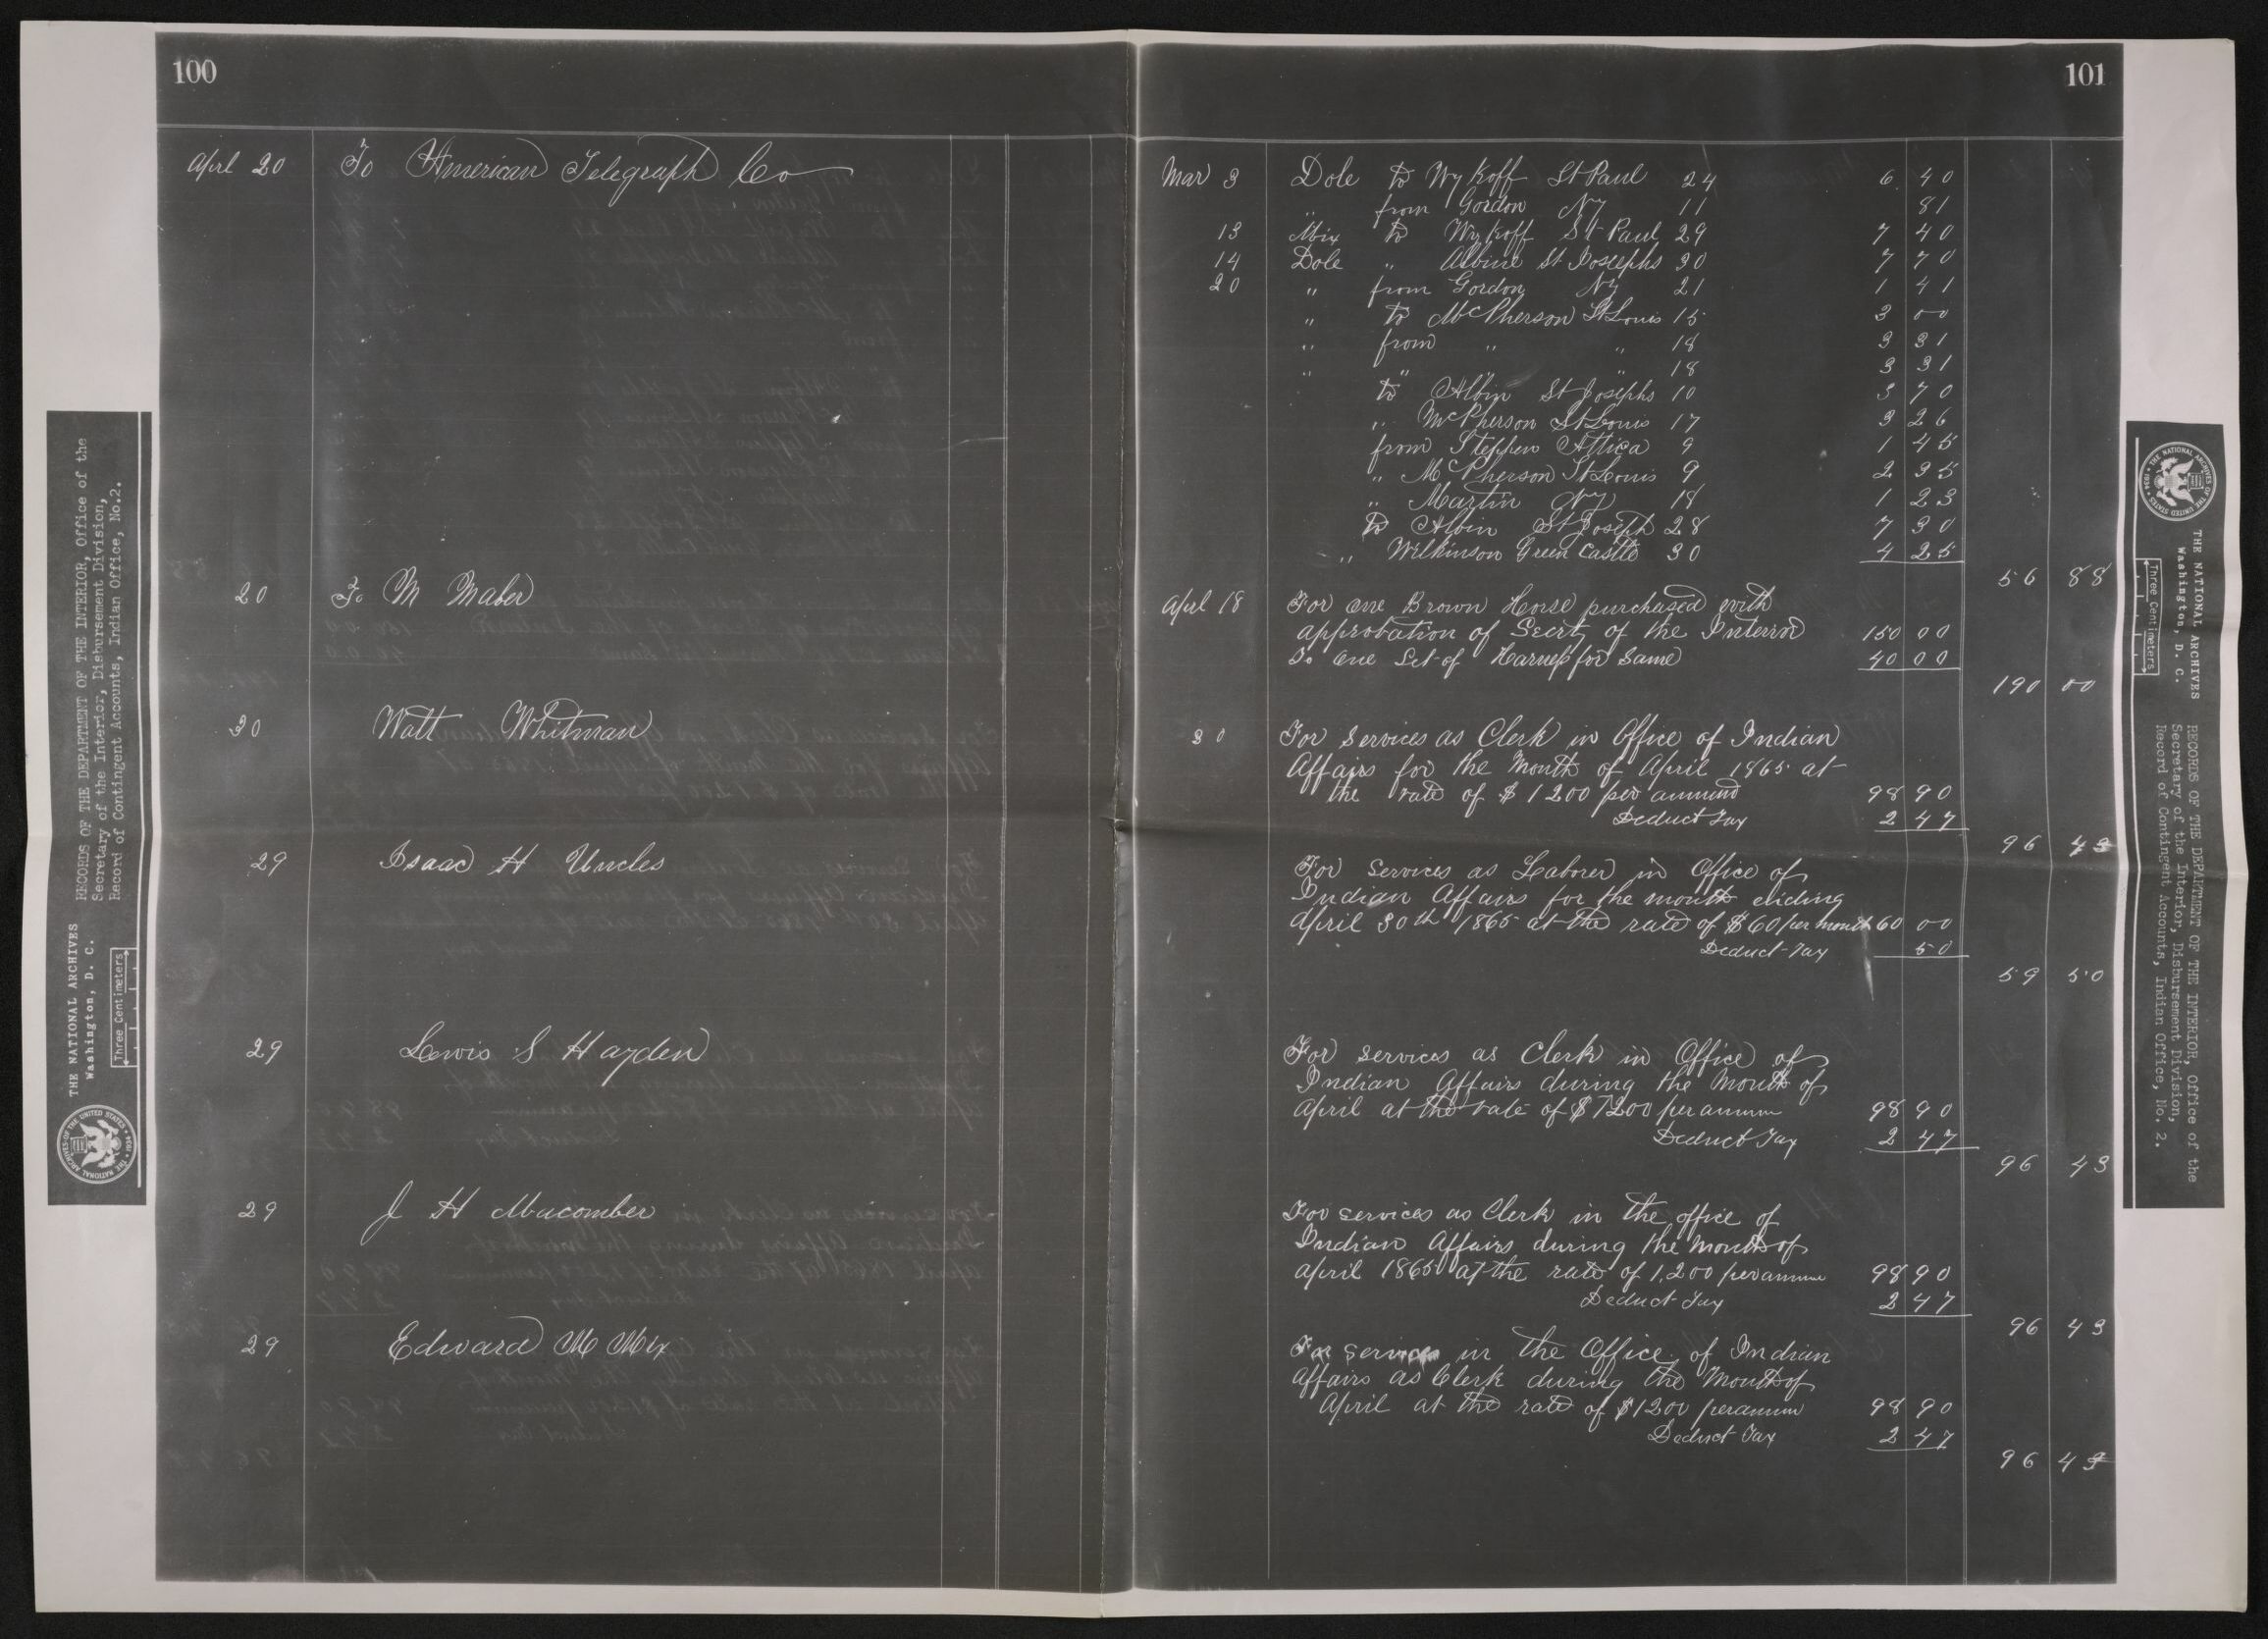 100
April 20 To American Telegraph Co
20 To M Maber
30 Watt Whitman
29 Isaac H Uncles
29 Lewis S Hayden
29 J H Macomber
29 Edward M Mix
101
Mar 3 Dole to Wykoff St Paul 24 6 40
" from Gordon NY 11 81
13 Mix to Wykoff St Paul 29 7 40
14 Dole " Albine St Josephs 30 7 70
20 " from Gordon NY 21 1 41
" to McPherson St Louis 15 3 00
" from " " 18 3 31
" " " " 18 3 31
to Albin St Josephs 10 3 70
" McPherson St Louis 17 3 26
from Stephen Attica 9 1 45
" McPherson St Louis 9 2 35
" Martin NY 18 1 23
to Albin St Joseph 28 7 30
" Wilkinson Green Castle 30 4 25
56 88
April 18 For one Brown Horse purchased with
approbation of Secrty of the Interior 150 00
To one Set of Harness for Same 40 00
190 00
30 For Services as Clerk in Office of Indian
Affairs for the Month of April 1865 at
the rate of $1200 per annum 98 90
Deduct Tax 2 47
96 43
For Services as Laborer in Office of
Indian Affairs for the month ending
April 30th 1865 at the rate of $60 per month 60 00
Deduct Tax 50
59 50
For services as Clerk in Office of
Indian Affairs during the Month of
April at the rate of $1200 per annum 98 90
Deduct Tax 2 47
96 43
For services as Clerk in the office of
Indian Affairs during the Month of
April 1865 at the rate of 1,200 per annum 98 90
Deduct Tax 2 47
96 43
For services in the Office of Indian
Affairs as Clerk during the Month of
April at the rate of $1200 per annum 98 90
Deduct Tax 2 47
96 43
THE NATIONAL ARCHIVES
Washington, D. C.
Three Centimeters
RECORDS OF THE DEPARTMENT OF THE INTERIOR, Office of the
Secretary of the Interior, Disbursement Division,
Record of Contingent Accounts, Indian Office, No.2.
THE NATIONAL ARCHIVES OF THE UNITED STATES
1934
THE NATIONAL ARCHIVES
Washington, D. C.
Three Centimeters
RECORDS OF THE DEPARTMENT OF THE INTERIOR, Office of the
Secretary of the Interior, Disbursement Division,
Record of Contingent Accounts, Indian Office, No. 2.
THE NATIONAL ARCHIVES OF THE UNITED STATES
1934